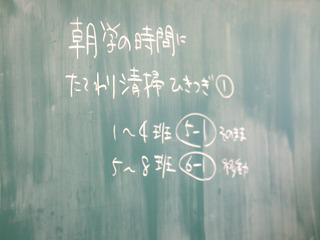 朝学の時間に
たてわり清掃ひきつぎ①
1〜4班 5-1 そのまま
5〜8班 6-1 移動